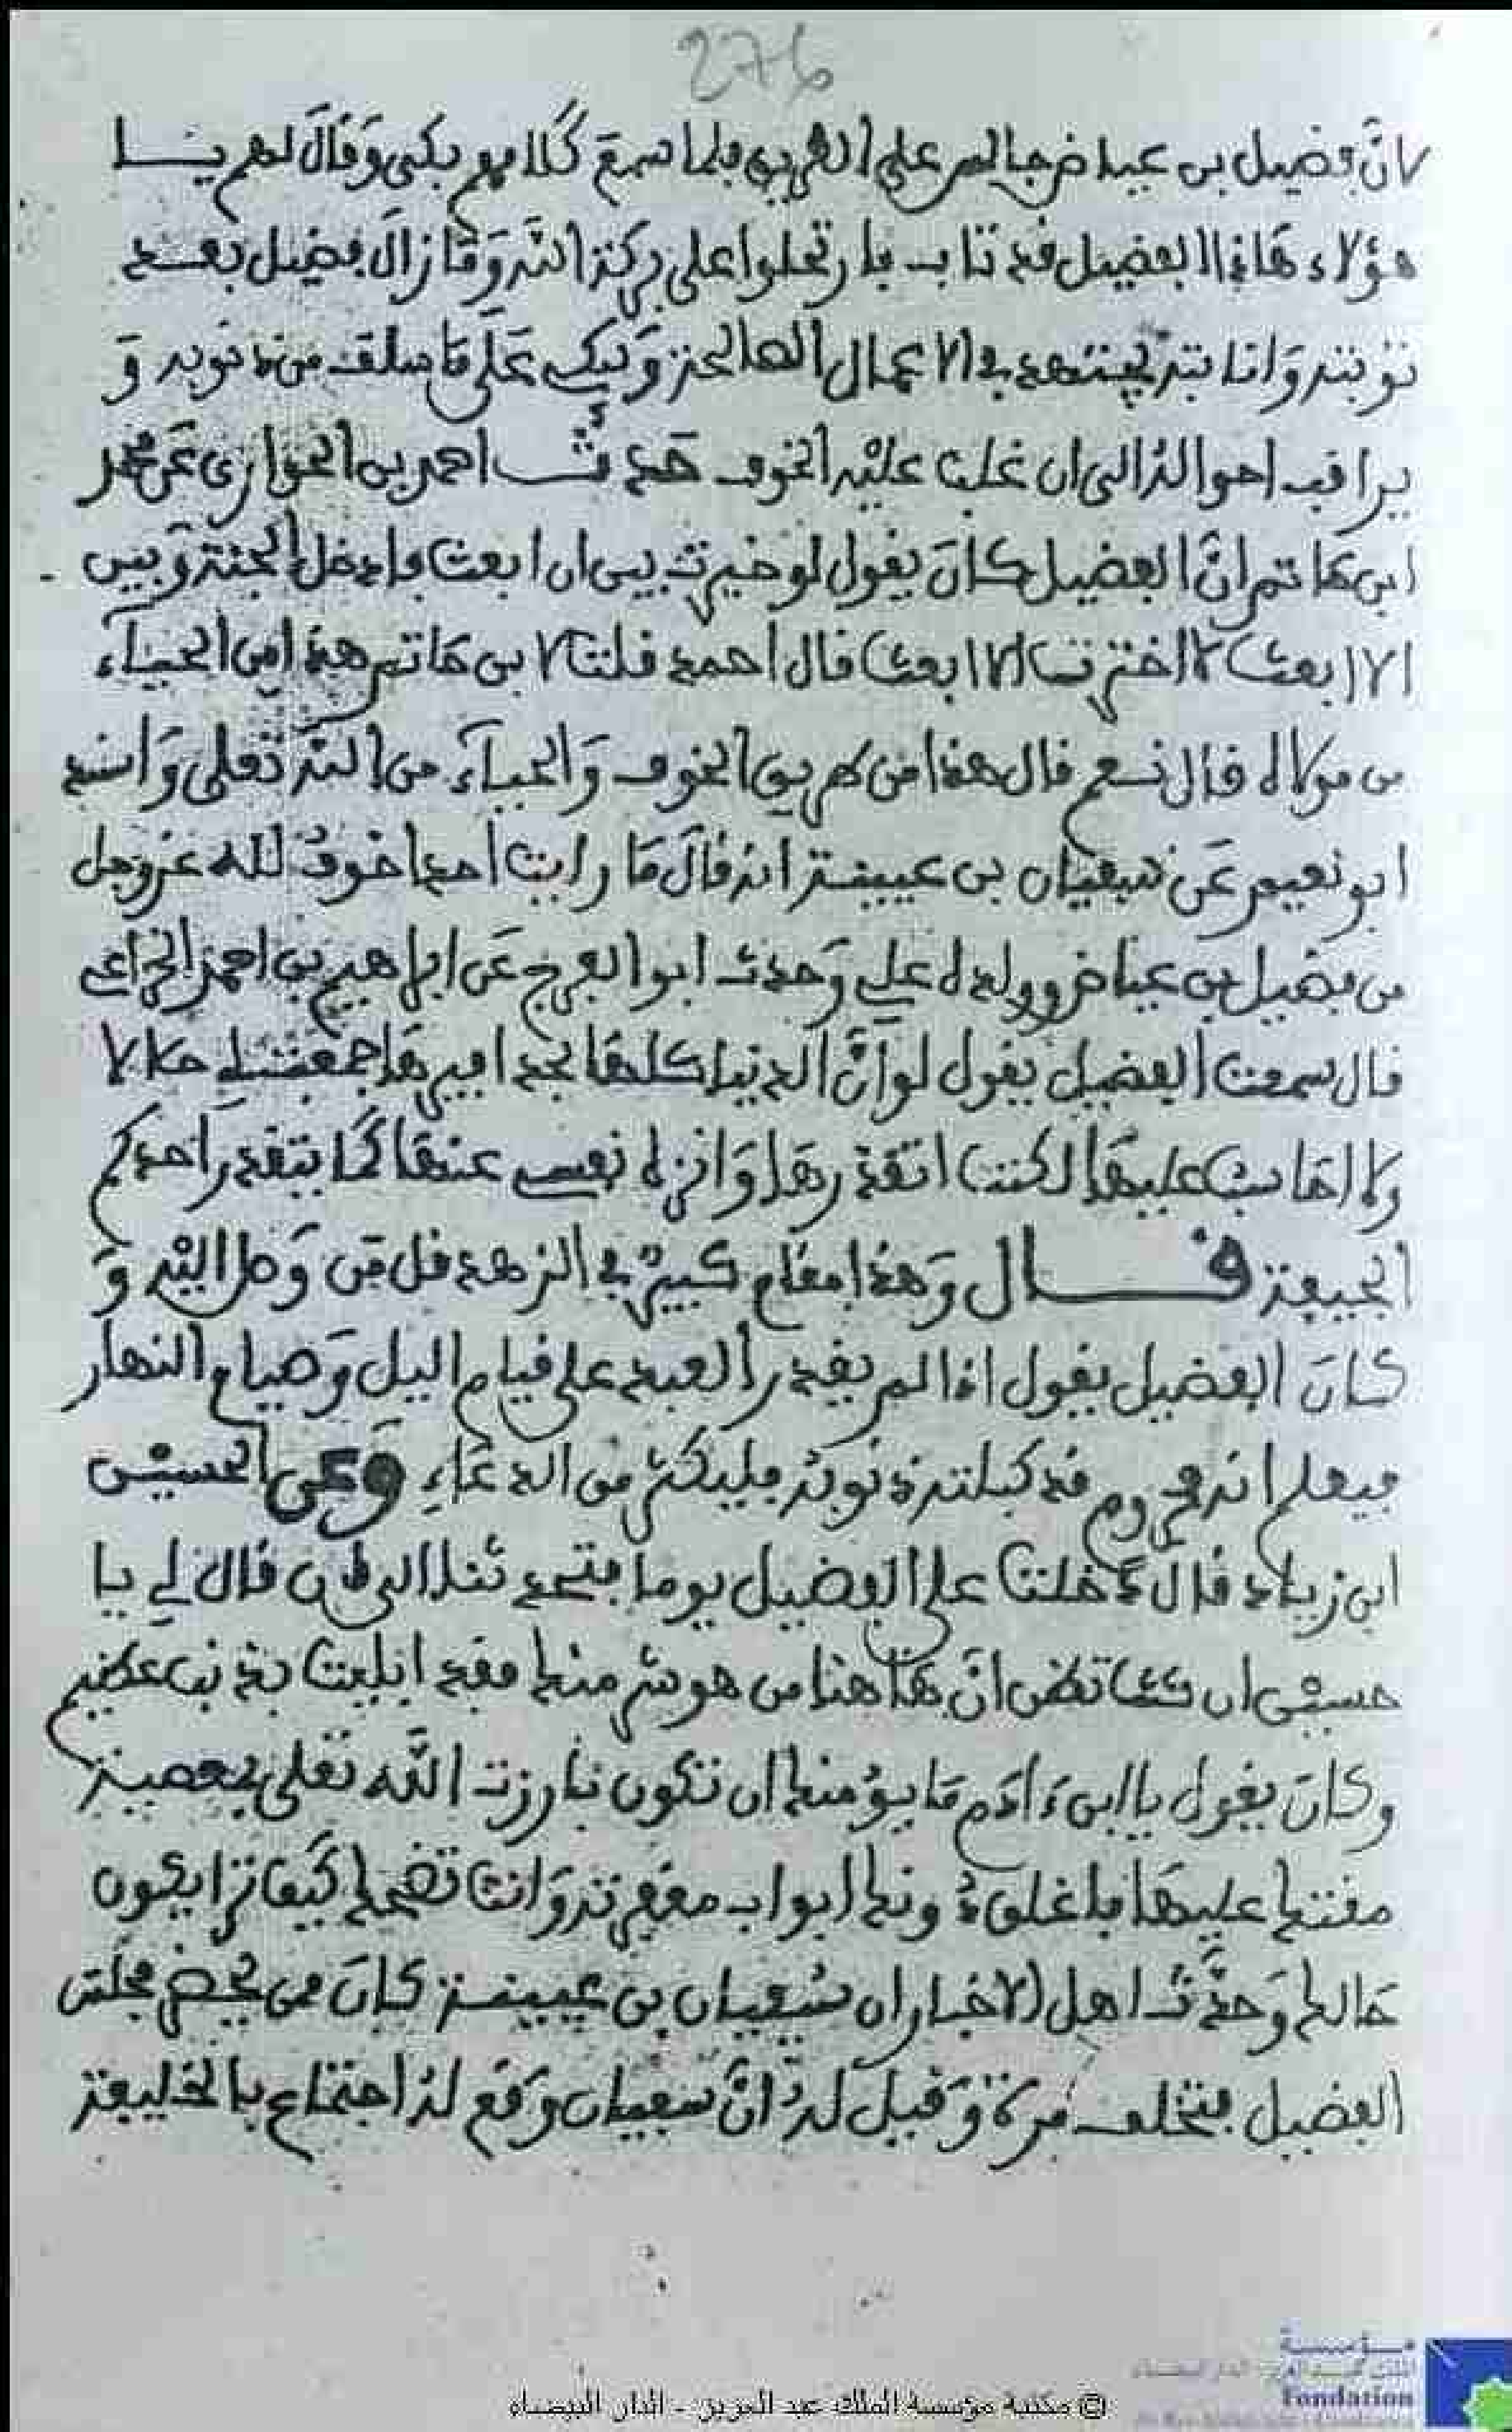 276
لان فضيل بن عياض جالس على الطريق فلما سمع كلامهم بكى وقال لهم يا
هؤلاء هاذا الفضيل قد تاب فارتحلوا على بركة الله وما زال فضيل بعد
توبته وانابته يجتهد في الاعمال الصالحة ويبكي على ما سلف من ذنوبه و
يراقب احواله الى ان غلب عليه الخوف حدث احمد بن الحوازي عن محمد
ابن حاتم ان الفضيل كان يقول لو خيرت بين ان ابعث وادخل الجنة وبين
الا ابعث لاخترت الا ابعث قال احمد قلت لابن حاتم هذا من الحياء
من مولاه قال نعم قال هذا من طريق الخوف والحياء من الله تعلى واسند
ابو نعيم عن سفيان بن عيينة انه قال ما رايت احدا اخوف لله عز وجل
من فضيل بن عياض وولده علي وحدث ابو الفرج عن ابراهيم بن احمد الخزاعي
قال سمعت الفضيل يقول لو ان الدنيا كلها بحذافيرها جمعت لي حلالا
ولا احاسب عليها لكنت اتقذرها وانزه نفسي عنها كما يتقذر احدكم
الجيفة قال وهذا مقام كبير في الزهد قل من وصل اليه و
كان الفضيل يقول اذا لم يقدر العبد على قيام اليل وصيام النهار
فيعلم انه محروم قد كبلته ذنوبه فليكثر من الدعاء وعن الحسين
ابن زياد قال دخلت على الفضيل يوما فتحدثنا الى ان قال لي يا
حسين ان كنت تظن ان هاهنا من هو شر منك فقد ابليت بذنب عظيم
وكان يقول يا ابن ءادم ما يؤمنك ان تكون بارزت الله تعلى بمعصية
مقتك عليها فاغلق دونك ابواب مغفرته وانت تضحك كيف ترا يكون
حالك وحدث اهل الاخبار ان سفيان بن عيينة كان ممن يحضر مجلس
الفضيل فتخلف مرة وقيل له ان سفيان وقع له اجتماع بالخليفة
مؤسسة
Fondation
© مكتبة مؤسسة الملك عبد العزيز - الدار البيضاء